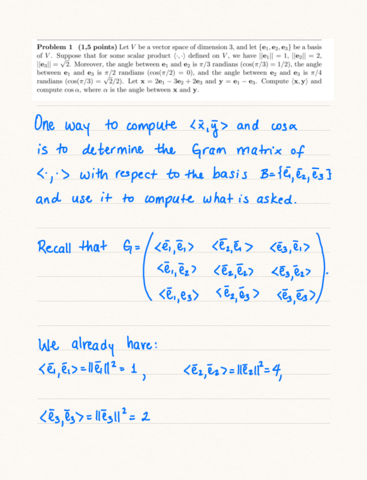 Problem 1 (1,5 points) Let V be a vector space of dimension 3, and let {e₁, e₂, e₃} be a basis
of V. Suppose that for some scalar product ⟨·,·⟩ defined on V, we have ||e₁|| = 1, ||e₂|| = 2,
||e₃|| = √2. Moreover, the angle between e₁ and e₂ is π/3 radians (cos(π/3) = 1/2), the angle
between e₁ and e₃ is π/2 radians (cos(π/2) = 0), and the angle between e₂ and e₃ is π/4
radians (cos(π/3) = √2/2). Let x = 2e₁ − 3e₂ + 2e₃ and y = e₁ − e₃. Compute ⟨x, y⟩ and
compute cos α, where α is the angle between x and y.
One way to compute <x̄,ȳ> and cosα
is to determine the Gram matrix of
<·,·> with respect to the basis B={ē₁,ē₂,ē₃}
and use it to compute what is asked.
Recall that G= ( <ē₁,ē₁> <ē₂,ē₁> <ē₃,ē₁>
<ē₁,ē₂> <ē₂,ē₂> <ē₃,ē₂>
<ē₁,e₃> <ē₂,ē₃> <ē₃,ē₃> ).
We already have:
<ē₁,ē₁>=||ē₁||²=1, <ē₂,ē₂>=||ē₂||²=4,
<ē₃,ē₃>=||ē₃||²=2